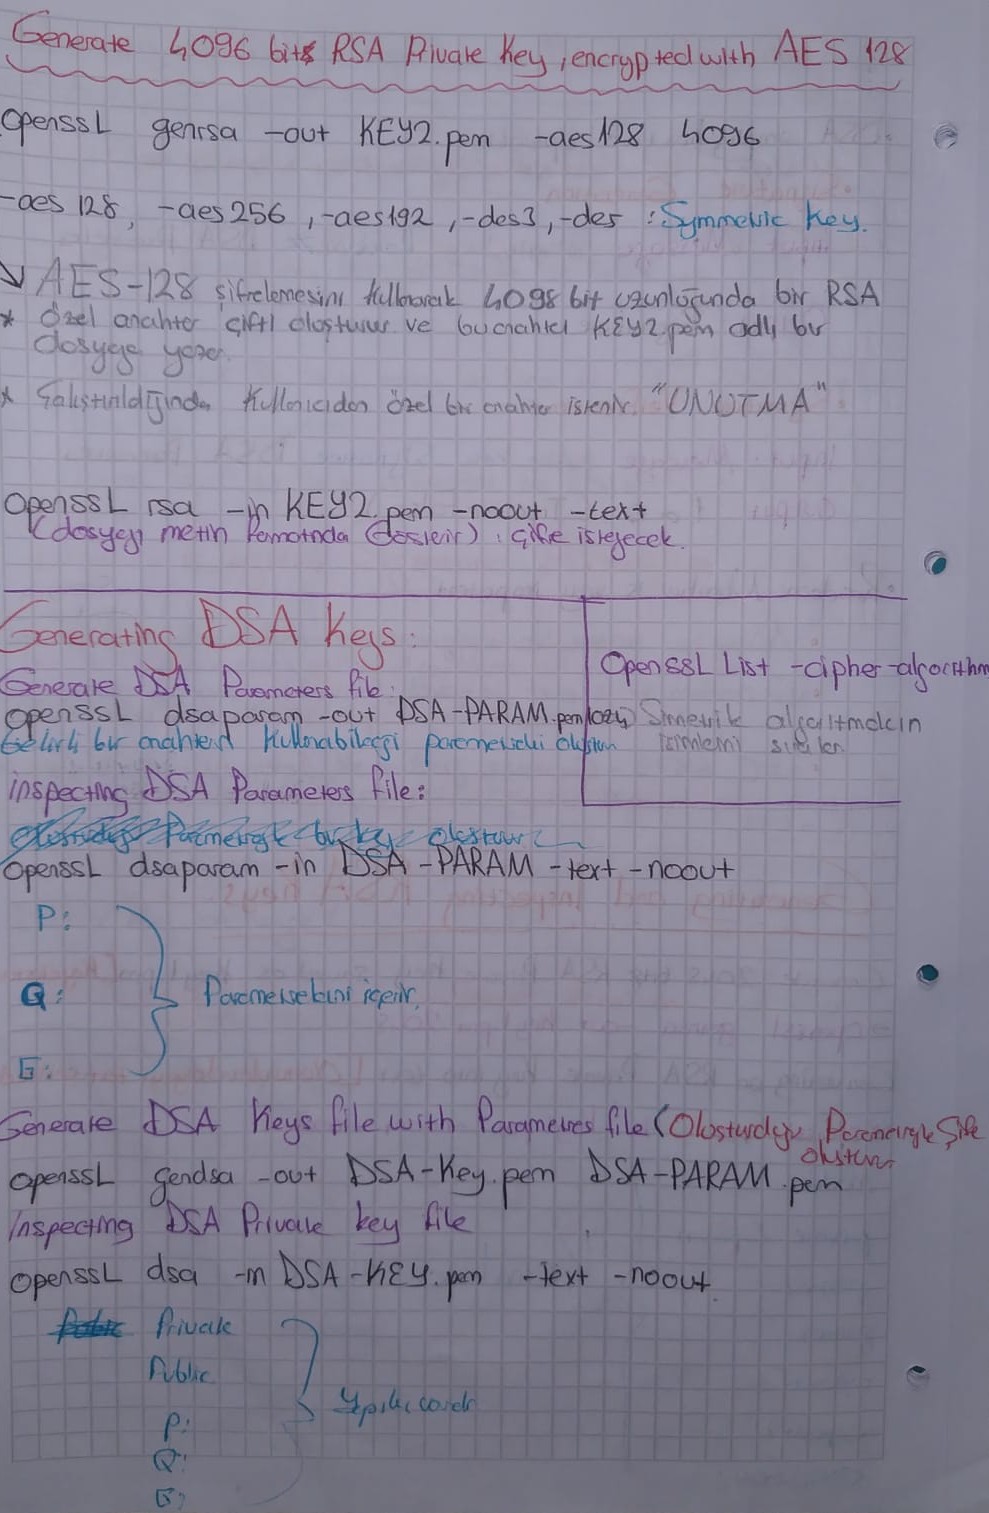 Generate 4096 bits RSA Private Key, encrypted with AES 128
OpenssL genrsa -out KEY2.pem -aes128 4096
-aes 128, -aes256, -aes192, -des3, -des : Symmetric Key.
AES-128 şifrelemesini kullanarak 4098 bit uzunluğunda bir RSA
* Özel anahtar çifti oluşturur ve bu anahtarı KEY2.pem adlı bir
dosyaya yazar.
* Çalıştırıldığında kullanıcıdan özel bir anahtar istenir. "UNUTMA"
OpenssL rsa -in KEY2.pem -noout -text
(dosyayı metin formatında gösterir) : şifre isteyecek.
Generating DSA Keys:
Generate DSA Parameters file:
OpenssL dsaparam -out DSA-PARAM.pem 1024
Belirli bir anahtarın kullanabileceği parametreleri oluşturur
OpenssL List -cipher-algorithm
Simetrik algoritmaların
isimlerini sıralar
inspecting DSA Parameters file:
OpenssL dsaparam -in DSA-PARAM -text -noout
P:
Q: Parametrelerini içerir.
G:
Generate DSA Keys file with Parameters file (Oluşturduğu Parametreyle Şifre
oluşturur
OpenssL gendsa -out DSA-Key.pem DSA-PARAM.pem
Inspecting DSA Private key file
OpenssL dsa -in DSA-KEY.pem -text -noout
Private
Public
P:
Q:
G: